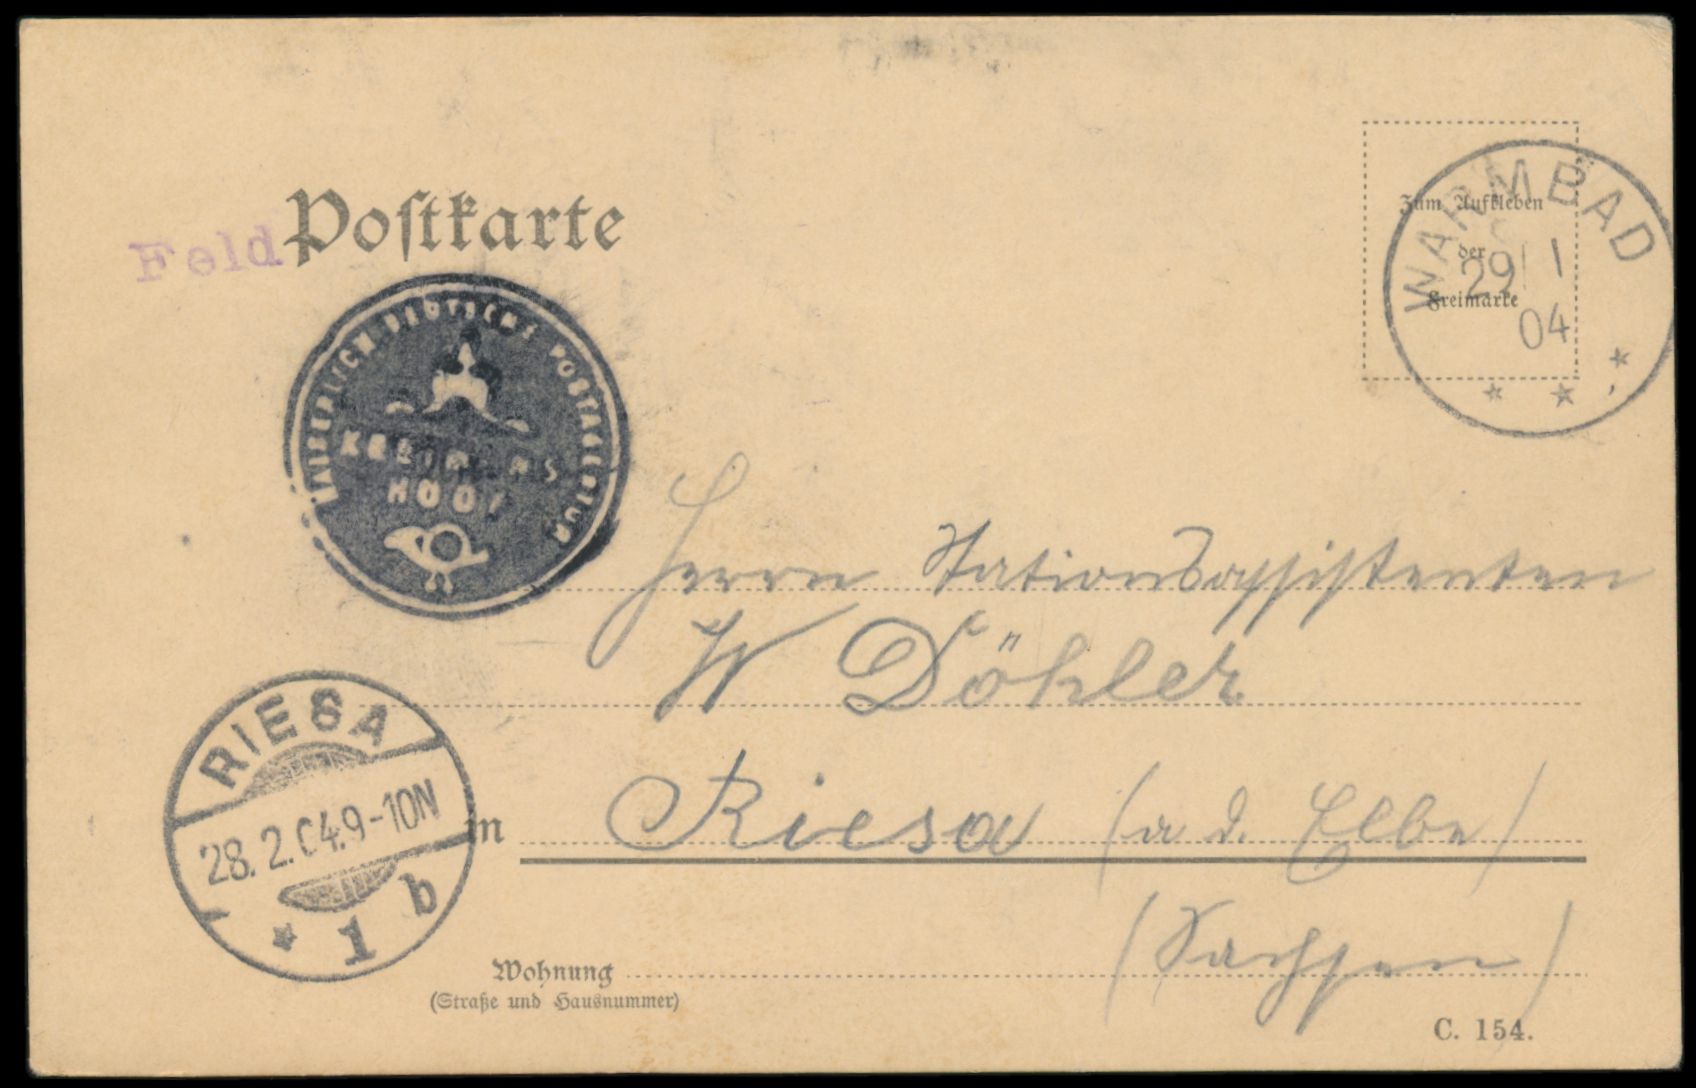 Feld Postkarte
Zum Aufkleben
der
Freimarke
WARMBAD
29 1
04
KAISERLICH DEUTSCHE POSTAGENTUR
HOOP
Herrn Stationsassistenten
W Döhler
RIESA
28.2.04.9-10N
* 1 b
in Riesa (a d. Elbe)
(Sachsen)
Wohnung
(Straße und Hausnummer)
C. 154.